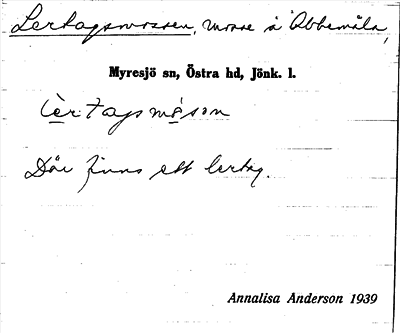 Lertagsmossen, mosse å Abbemåla,
Myresjö sn, Östra hd, Jönk. l.
lèr:tagsmósən
Där finns ett lertag.
Annalisa Anderson 1939